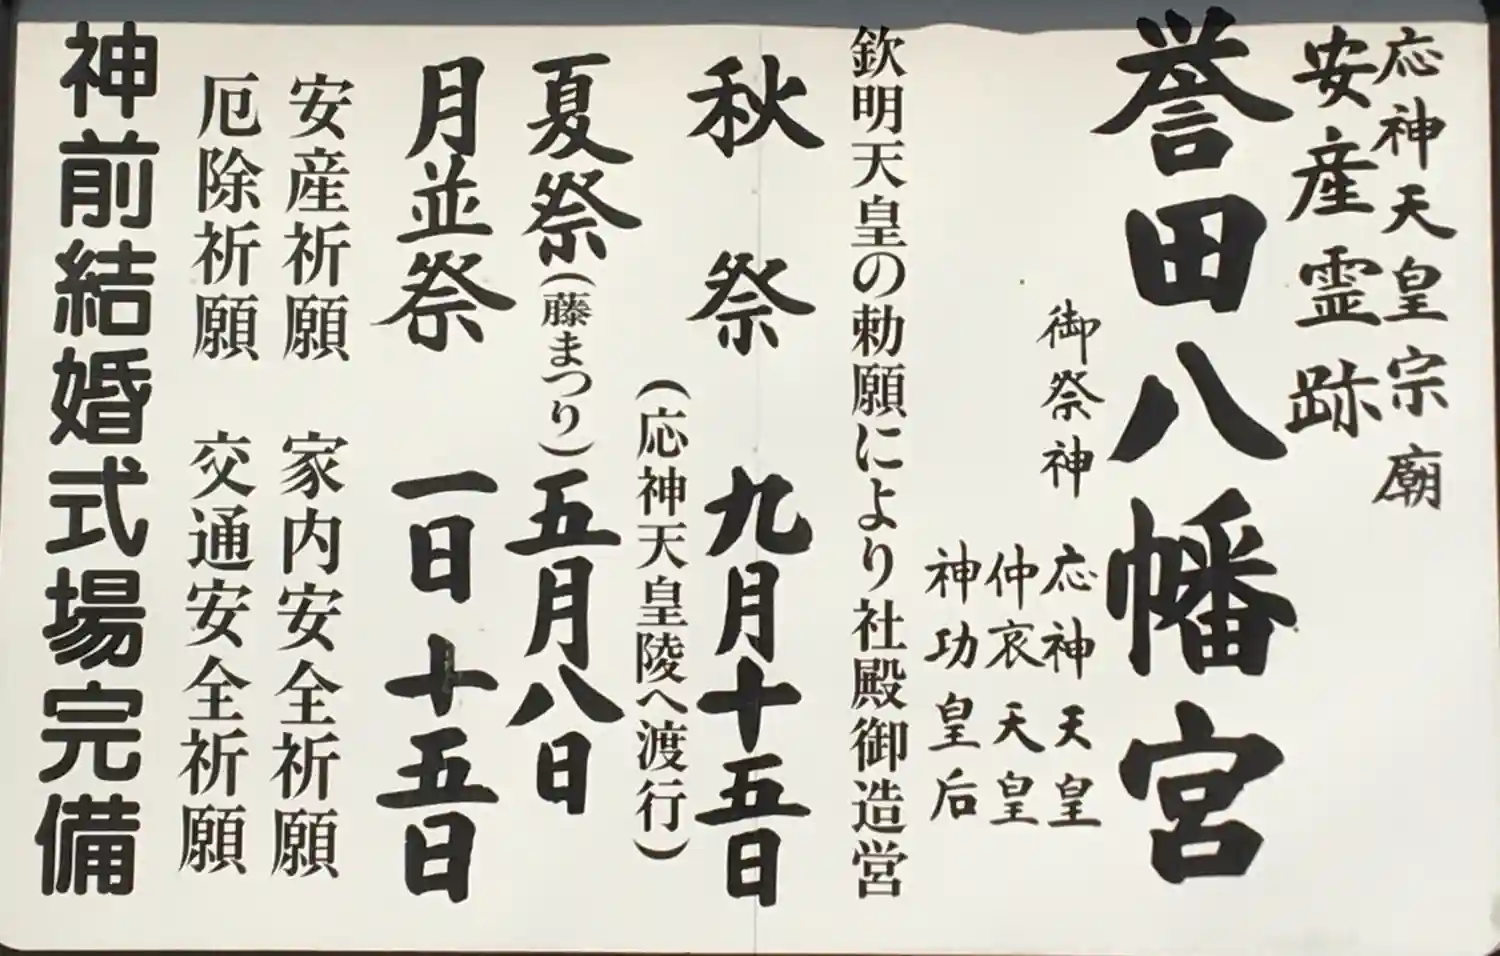 応神天皇宗廟
安産霊跡
誉田八幡宮
御祭神 応神天皇
仲哀天皇
神功皇后
欽明天皇の勅願により社殿御造営
秋祭 九月十五日
(応神天皇陵へ渡行)
夏祭(藤まつり) 五月八日
月並祭 一日 十五日
安産祈願 家内安全祈願
厄除祈願 交通安全祈願
神前結婚式場完備